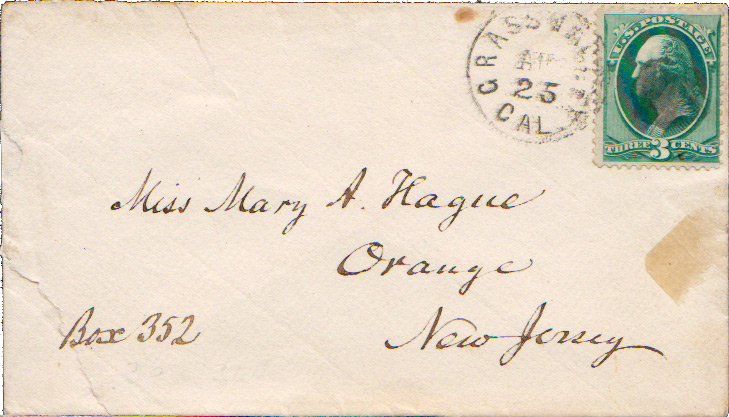 GRASS VALLEY
25
CAL
U.S. POSTAGE
THREE 3 CENTS
Miss Mary A. Hague
Orange
New Jersey
Box 352